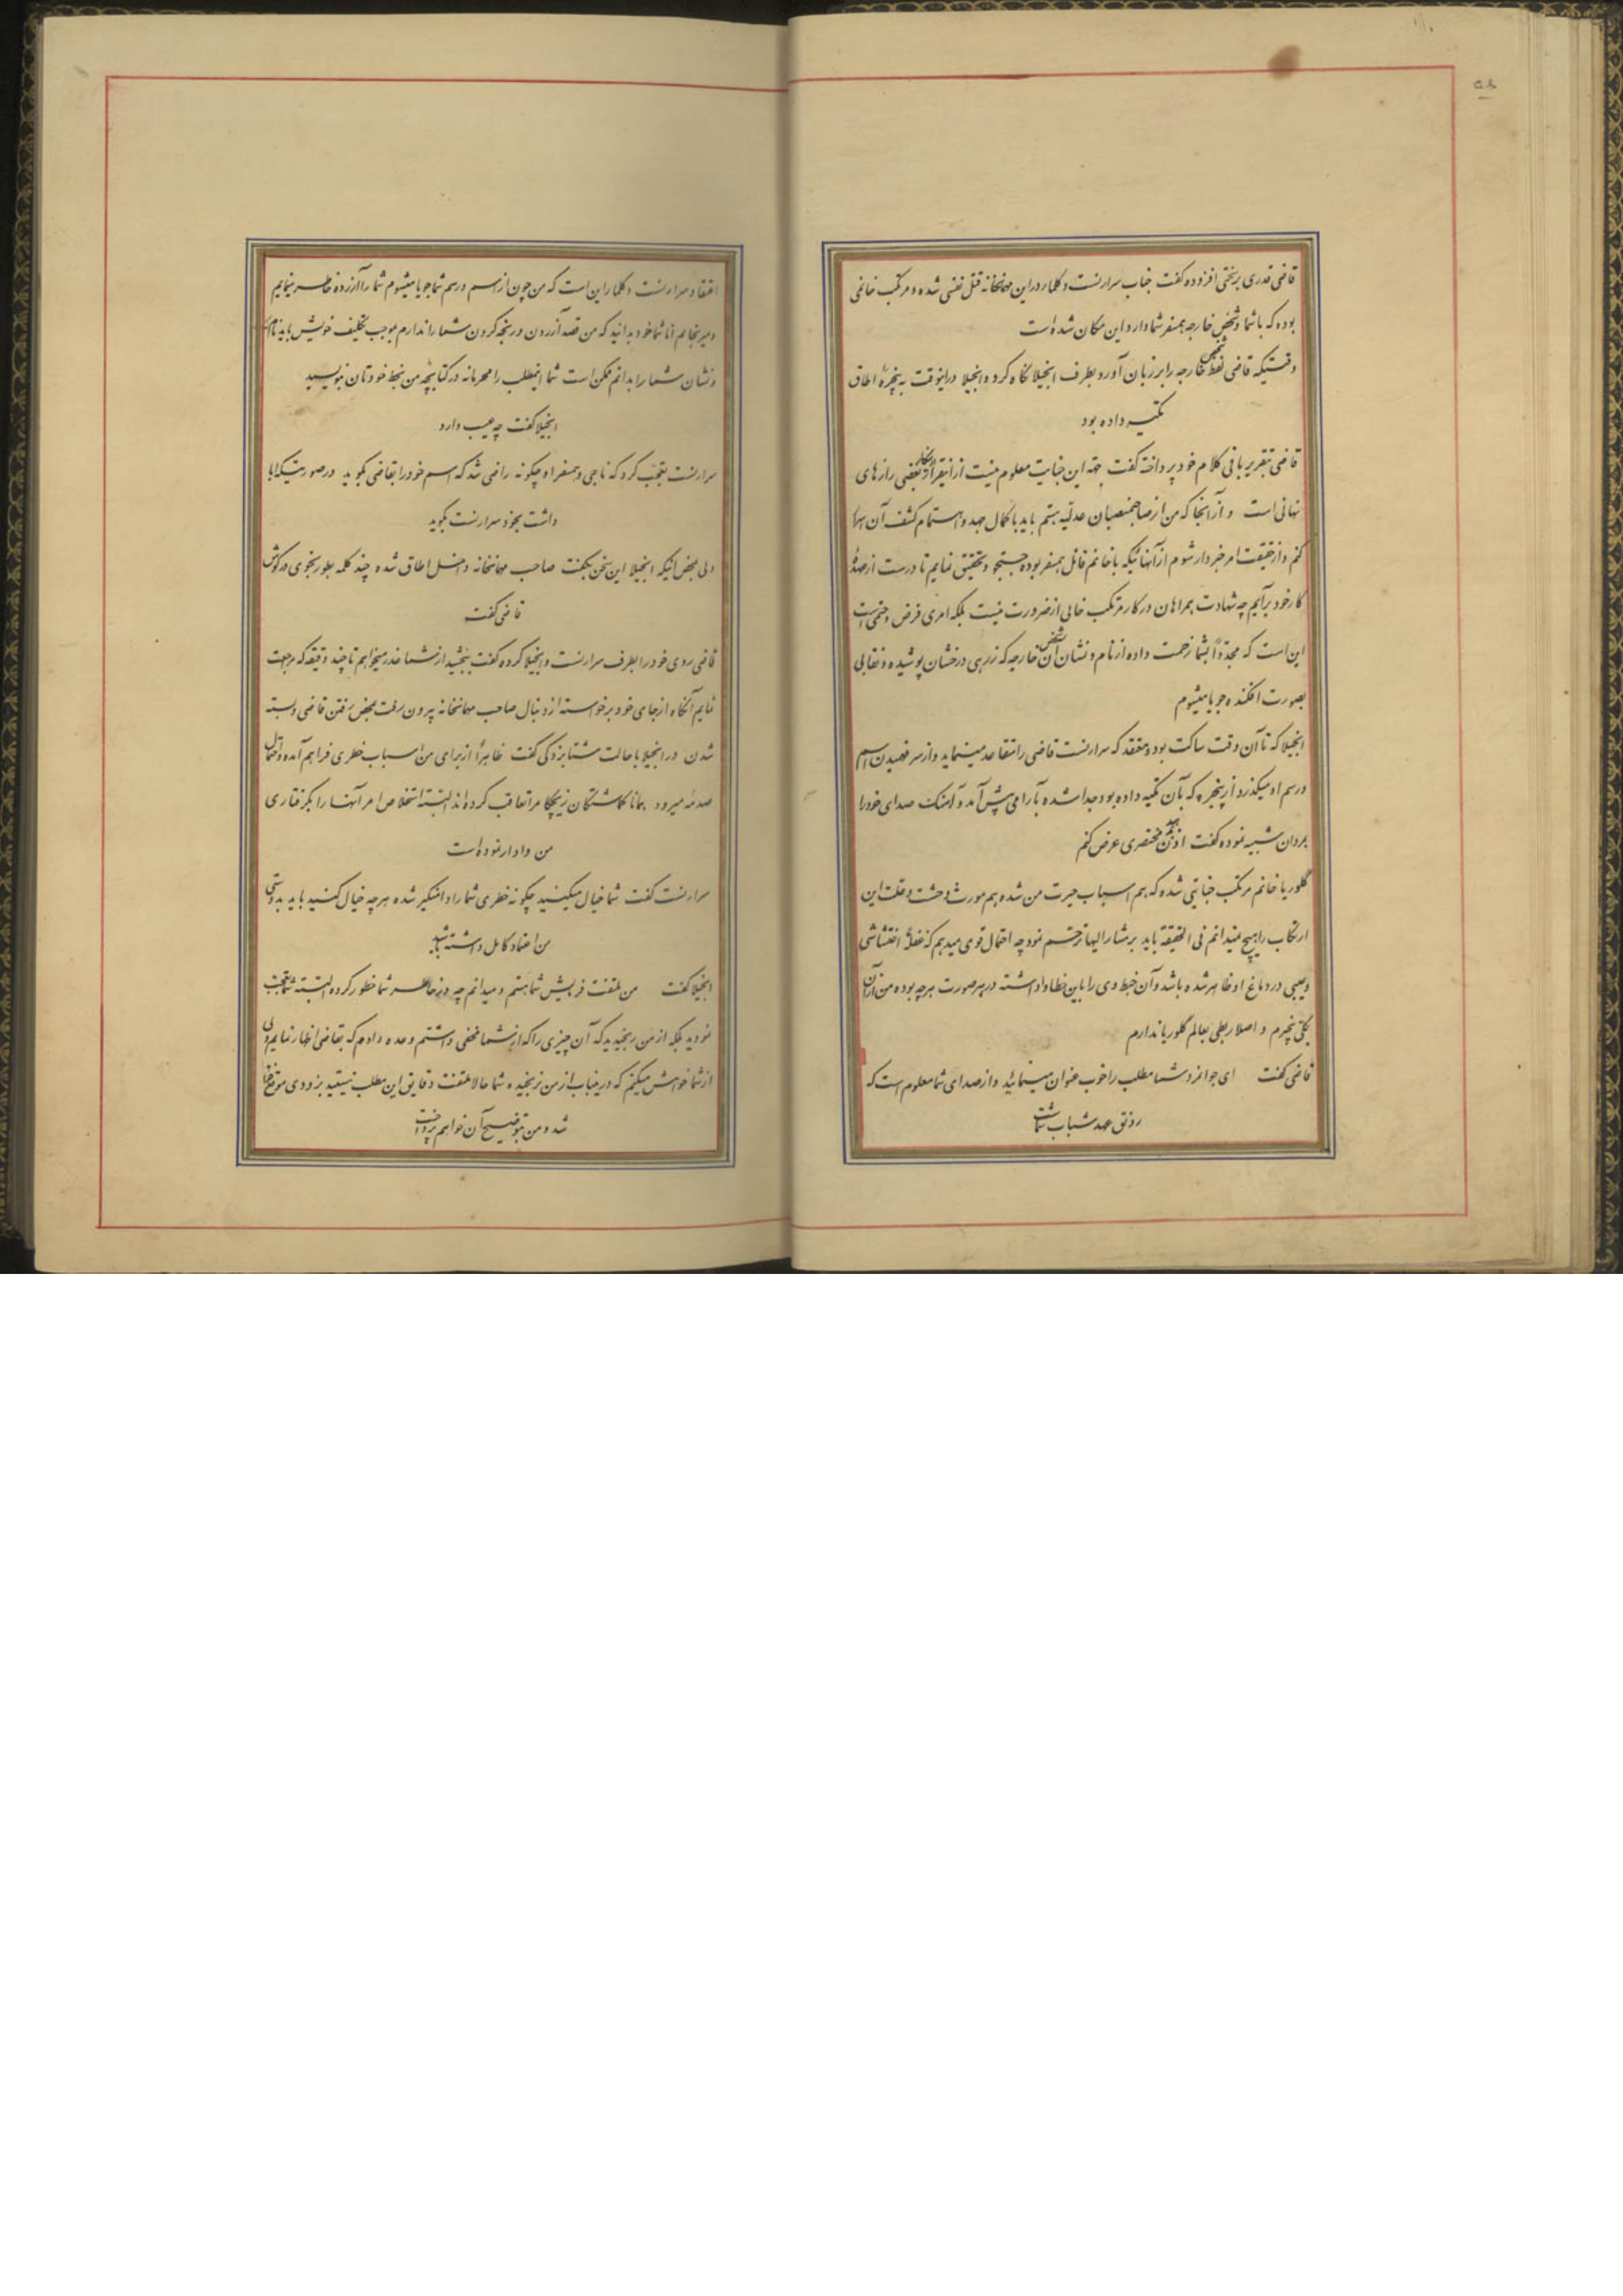 قاضی قدری برسختی افزوده گفت جناب سرارنست دکلمار در این مهمانخانه قتل نفسی شده و مرتکب خانمی
بوده که باشما و شخص خارجه همسفر شما وارد این مکان شده است
وقتیکه قاضی لفظ شخص خارجه را بر زبان آورد بطرف انجیلا نگاه کرد و انجیلا در اینوقت به پنجرهٔ اطاق
تکیه داده بود
قاضی بتقریر باقی کلام خود پرداخته گفت جهة این جنایت معلوم نیست از اینقرار بعضی رازهای
نهانی است و از آنجا که من از صاحبمنصبان عدلیه هستم باید با کمال جهد و اهتمام کشف آن اسرار
کنم و از حقیقت امر خبردار شوم از آنهائیکه با خانم قاتل همسفر بوده جستجو و تحقیق نمایم تا درست از عهدهٔ
کار خود برآیم چه شهادت همراهان در کار مرتکب خالی از ضرورت نیست بلکه امری فرض و حتمی است
این است که مجدّداً بشما زحمت داده از نام و نشان آن شخص خارجه که زرهی درخشان پوشیده و نقابی
بصورت افکنده جویا میشوم
انجیلا که تا آن وقت ساکت بود و معتقد که سرارنست قاضی را متقاعد مینماید و از سر فهمیدن اسم
و رسم او میگذرد از پنجره که بآن تکیه داده بود جدا شده بآرامی پیش آمد و آهنگ صدای خود را
بمردان شبیه نموده گفت اذن مختصری عرض کنم
گلوریا خانم مرتکب جنایتی شده که هم اسباب حیرت من شده هم مورث وحشت و علت این
ارتکاب را هیچ نمیدانم فی الحقیقة باید بر مشارالیها ترحّم نمود چه احتمال قوی میدهم که غفلةً اغتشاشی
و عیبی در دماغ او ظاهر شده باشد و آن خبط وی را باین خطا واداشته در هر صورت هرچه بوده من از آن
بکلی بیخبرم و اصلا ربطی بعالم گلوریا ندارم
قاضی گفت ای جوانمرد شما مطلب را خوب عنوان مینمائید و از صدای شما معلوم است که
رونق عهد شباب شماست
اعتقاد سرارنست دکلمار این است که من چون از اسم و رسم شما جویا میشوم شما را آزرده خاطر مینمایم
و میرنجانم اما شما خود بدانید که من قصد آزردن و رنجه کردن شما را ندارم بموجب تکلیف خویش باید نام
و نشان شما را بدانم ممکن است شما اینمطلب را محرمانه در کتابچه من بخط خودتان بنویسید
انجیلا گفت چه عیب دارد
سرارنست تعجّب کرد که ناجی و همسفر او چگونه راضی شد که اسم خود را بقاضی بگوید در صورتیکه ابا
داشت بخود سرارنست بگوید
ولی بمحض اینکه انجیلا این سخن بگفت صاحب مهمانخانه داخل اطاق شده چند کلمه بطور نجوی در گوش
قاضی گفت
قاضی روی خود را بطرف سرارنست و انجیلا کرده گفت ببخشید از شما عذر میخواهم تا چند دقیقه که مراجعت
نمایم آنگاه از جای خود برخواسته از دنبال صاحب مهمانخانه بیرون رفت بمحض رفتن قاضی و بسته
شدن در انجیلا با حالت شتابزدگی گفت ظاهراً از برای من اسباب خطری فراهم آمده و احتمال
صدمه میرود همانا گماشتگان زیچکا مرا تعاقب کرده اند البتّه استخلاص امر آنها را بگرفتاری
من وادار نموده است
سرارنست گفت شما خیال میکنید چگونه خطری شما را دامنگیر شده هرچه خیال کنید باید بدوستی
من اعتماد کامل داشته باشید
انجیلا گفت من ملتفت فرمایش شما هستم و میدانم چه در خاطر شما خطور کرده البتّه شما تعجب
نمودید بلکه از من رنجیدید که آن چیزی را که از شما مخفی داشتم وعده دادم که بقاضی اظهار نمایم ولی
از شما خواهش میکنم که در اینباب از من نرنجیده شما حالا ملتفت دقایق این مطلب نیستید بزودی موقع
شده من بتوضیح آن خواهم پرداخت